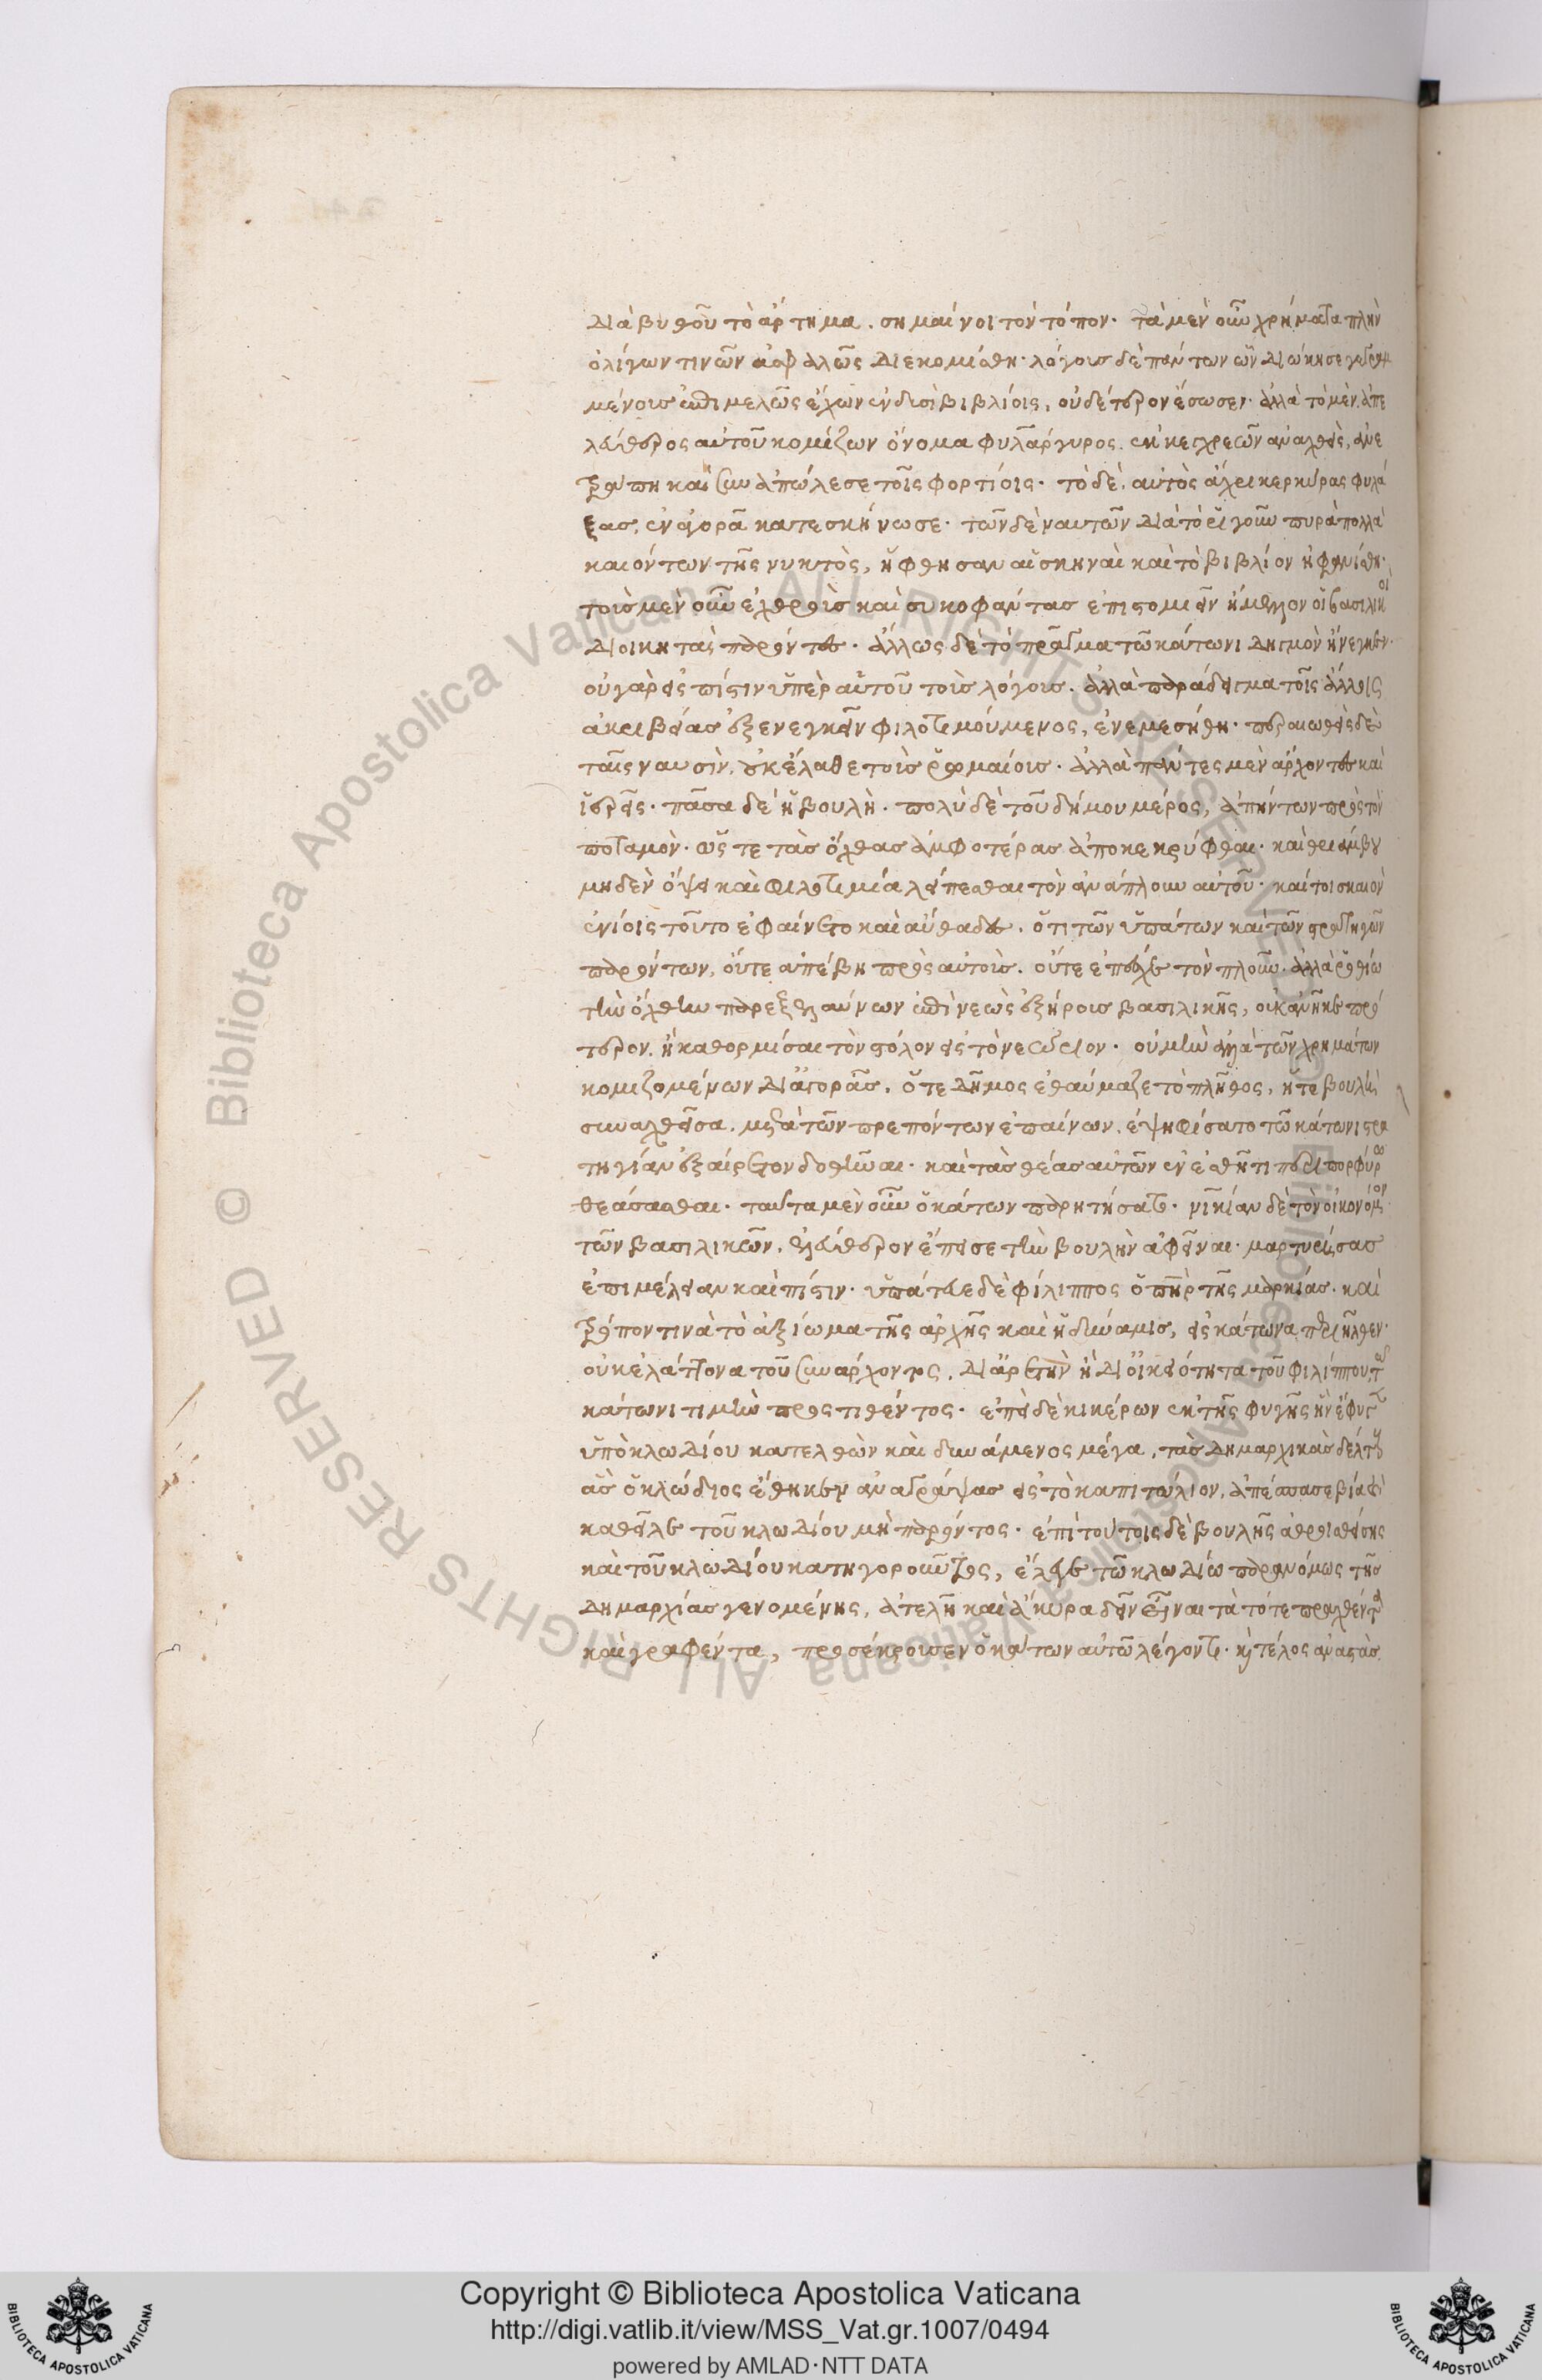 διὰ βυθοῦ τὸ ἄρτημα. σημαίνοι τὸν τόπον· τὰ μὲν οὖν χρήματα πλὴν
ὀλίγων τινῶν ἀσφαλῶς διεκομίσθη· λόγους δὲ πάντων ὧν διώκησε γεγραμ
μένους ἐπιμελῶς ἔχων ἐν δυσὶ βιβλίοις, οὐδέτερον ἔσωσεν· ἀλλὰ τὸ μὲν ἀπε
λεύθερος αὐτοῦ κομίζων ὄνομα φυλάργυρος. ἐκ κεγχρεῶν ἀναχθεὶς, ἀνε
τράπη καὶ συναπώλεσε τοῖς φορτίοις· τὸ δὲ. αὐτὸς ἄχρι κερκύρας φυλά
ξας, ἐν ἀγορᾷ κατεσκήνωσε· τῶν δὲ ναυτῶν διὰ τὸ ῥιγοῦν πυρὰ πολλὰ
καιόντων τῆς νυκτὸς, ἥφθησαν αἱ σκηναὶ καὶ τὸ βιβλίον ἠφανίσθη·
τοὺς μὲν οὖν ἐχθροὺς καὶ συκοφάντας ἐπιστομιεῖν ἤμελλον οἱ βασιλικοὶ
διοικηταὶ παρόντες· ἄλλως δὲ τὸ πρᾶγμα τῶ κάτωνι δηγμὸν ἤνεγκεν·
οὐ γὰρ εἰς πίστιν ὑπὲρ αὑτοῦ τοὺς λόγους. ἀλλὰ παράδειγμα τοῖς ἄλλοις
ἀκριβείας ἐξενεγκεῖν φιλοτιμούμενος, ἐνεμεσήθη· περαιωθεὶς δὲ
ταῖς ναυσὶν, οὐκ ἔλαθε τοὺς ῥωμαίους. ἀλλὰ πάντες μὲν ἄρχοντες καὶ
ἱερεῖς· πᾶσα δὲ ἡ βουλὴ. πολὺ δὲ τοῦ δήμου μέρος, ἀπήντων πρὸς τὸν
ποταμὸν. ὥστε τὰς ὄχθας ἀμφοτέρας ἀποκεκρύφθαι· καὶ θριάμβου
μηδὲν ὄψει καὶ φιλοτιμία λείπεσθαι τὸν ἀνάπλουν αὐτοῦ· καίτοι σκαιὸν
ἐνίοις τοῦτο ἐφαίνετο καὶ αὔθαδες. ὅτι τῶν ὑπάτων καὶ τῶν στρατηγῶν
παρόντων, οὔτε ἀπέβη πρὸς αὐτοὺς. οὔτε ἐπέσχε τὸν πλοῦν. ἀλλὰ ῥοθίω
τὴν ὄχθην παρεξελαύνων ἐπὶ νεὼς ἑξήρους βασιλικῆς, οὐκ ἀνῆκε πρό
τερον. ἢ καθορμίσαι τὸν στόλον εἰς τὸ νεώριον· οὐ μὴν ἀλλὰ τῶν χρημάτων
κομιζομένων δι' ἀγορᾶς. ὅ τε δῆμος ἐθαύμαζε τὸ πλῆθος, ἥ τε βουλὴ
συναχθεῖσα. μετὰ τῶν πρεπόντων ἐπαίνων. ἐψηφίσατο τῶ κάτωνι στρα
τηγίαν ἐξαίρετον δοθῆναι· καὶ τὰς θέας αὐτὸν ἐν ἐσθῆτι περιπορφύρω
θεάσασθαι· ταῦτα μὲν οὖν ὁ κάτων παρητήσατο· νικίαν δὲ τὸν οἰκονόμον
τῶν βασιλικῶν. ἐλεύθερον ἔπεισε τὴν βουλὴν ἀφεῖναι· μαρτυρήσας
ἐπιμέλειαν καὶ πίστιν· ὑπάτευε δὲ φίλιππος ὁ πατὴρ τῆς μαρκίας. καὶ
τρόπον τινὰ τὸ ἀξίωμα τῆς ἀρχῆς καὶ ἡ δύναμις, εἰς κάτωνα περιῆλθεν·
οὐκ ἐλάττονα τοῦ συνάρχοντος. δι' ἀρετὴν ἢ δι' οἰκειότητα τοῦ φιλίππου, τῶ
κάτωνι τιμὴν προστιθέντος· ἐπεὶ δὲ κικέρων ἐκ τῆς φυγῆς ἣν ἔφυγε
ὑπὸ κλωδίου κατελθὼν καὶ δυνάμενος μέγα, τὰς δημαρχικὰς δέλτους
ἃς ὁ κλώδιος ἔθηκεν ἀναγράψας εἰς τὸ καπιτώλιον, ἀπέσπασε βία καὶ
καθεῖλε τοῦ κλωδίου μὴ παρόντος· ἐπὶ τούτοις δὲ βουλῆς ἀθροισθείσης
καὶ τοῦ κλωδίου κατηγοροῦντος, ἔλεγε τῶ κλωδίω παρανόμως τῆς
δημαρχίας γενομένης, ἀτελῆ καὶ ἄκυρα δεῖν εἶναι τὰ τότε πραχθέντα
καὶ γραφέντα, προσέκρουσεν ὁ κάτων αὐτῶ λέγοντι. καὶ τέλος ἀναστὰς
© Biblioteca Apostolica Vaticana ALL RIGHTS RESERVED © Biblioteca Apostolica Vaticana ALL RIGHTS RESERVED
BIBLIOTECA APOSTOLICA VATICANA
Copyright © Biblioteca Apostolica Vaticana
http://digi.vatlib.it/view/MSS_Vat.gr.1007/0494
powered by AMLAD·NTT DATA
BIBLIOTECA APOSTOLICA VATICANA